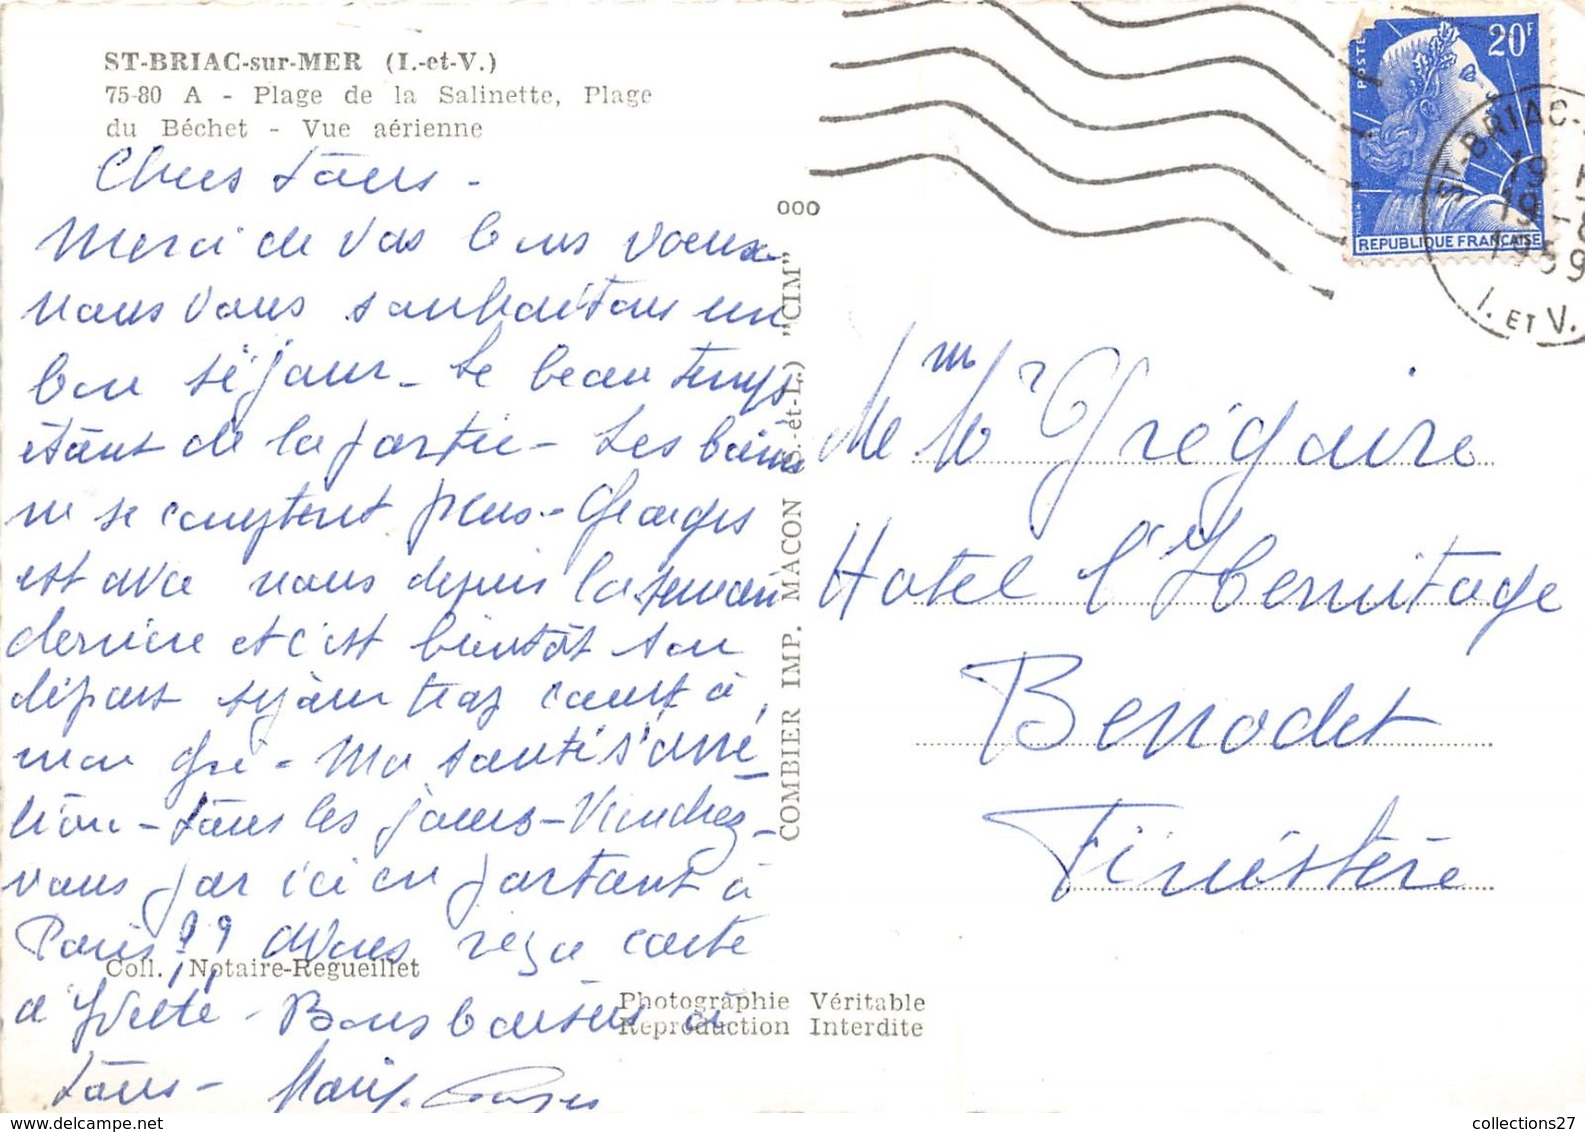 ST-BRIAC-sur-MER (I.-et-V.)
75-80 A - Plage de la Salinette, Plage
du Béchet - Vue aérienne
Chers tous -
Merci de vos bons voeux
nous vous souhaitons un
bon séjour - Le beau temps
étant de la partie - Les bains
ne se comptent plus - Georges
est avec nous depuis la semaine
dernière et c'est bientôt son
départ séjour trop court à
mon gré - Ma santé s'amé
liore - tous les jours - Viendrez-
vous par ici en partant à
Paris ?? Avons reçu carte
d'Yvette - Bons baisers à
tous -
Coll. Notaire-Regueillet
Photographie Véritable
Reproduction Interdite
000
COMBIER IMP. MACON (S.-et-L.) "CIM"
20F
POSTES
REPUBLIQUE FRANÇAISE
ST-BRIAC-
19 H
19 -8
1959
I. ET V.
Mr Grégoire
Hotel l'Hermitage
Benodet
Finistère
collections27